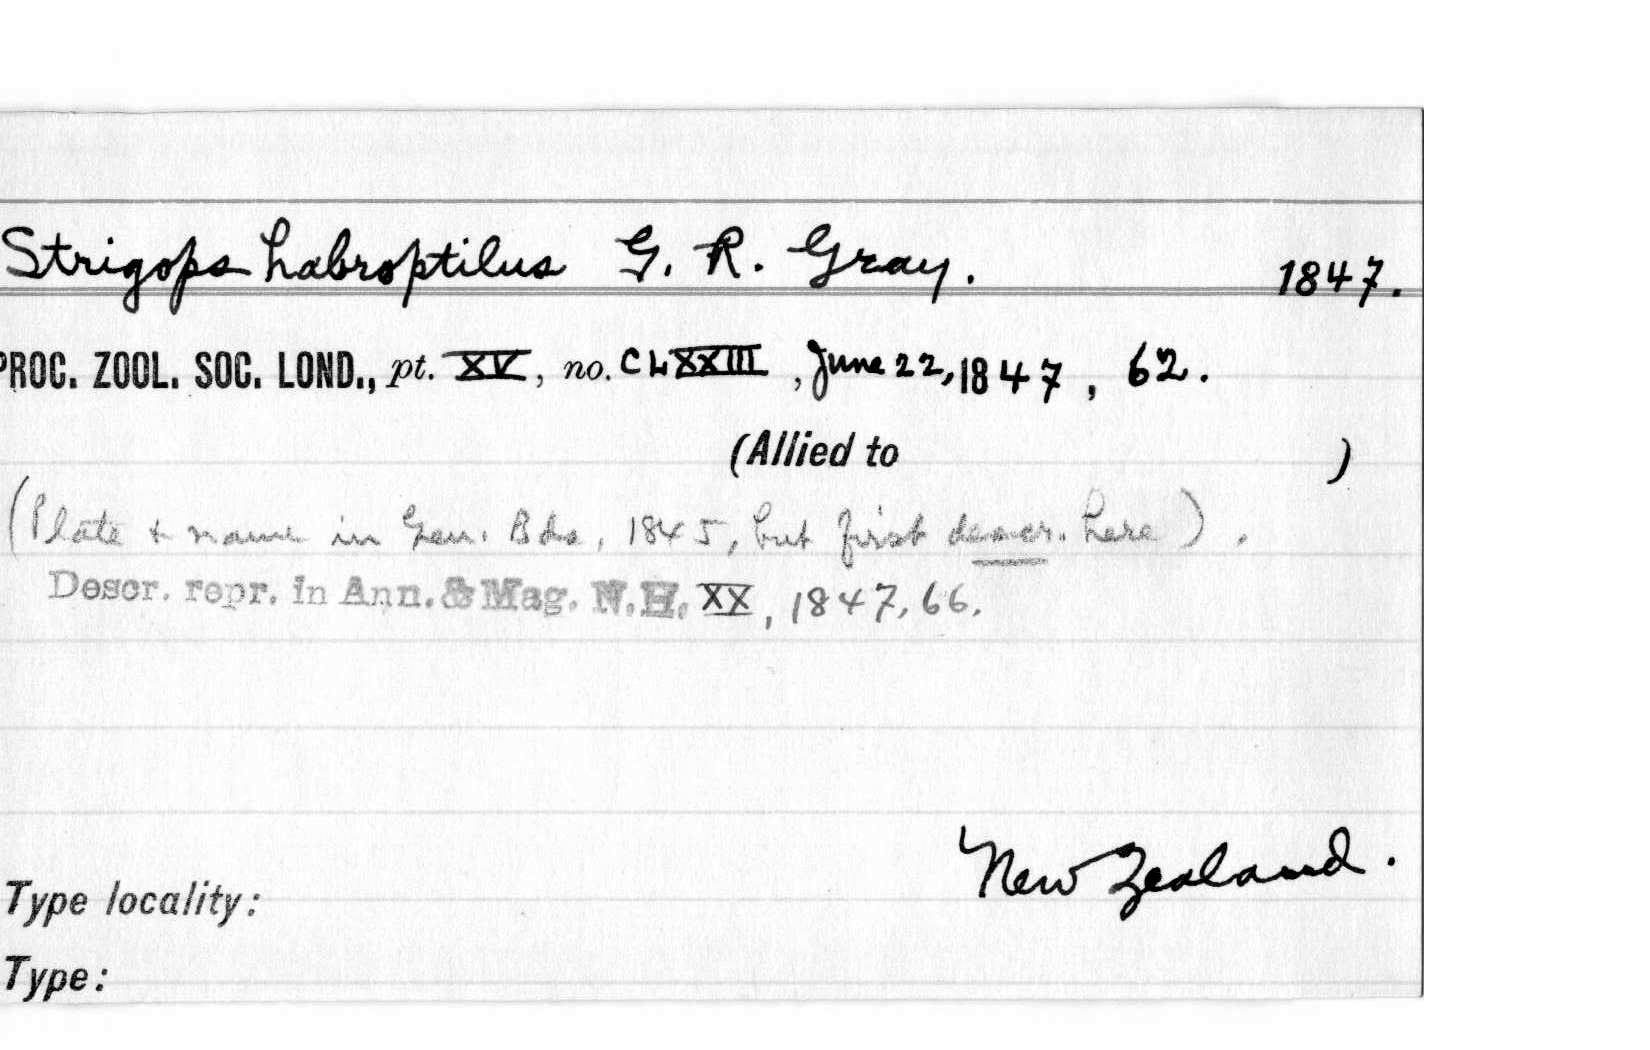 Strigops habroptilus G. R. Gray. 1847.
PROC. ZOOL. SOC. LOND., pt. XV, no. CLXXIII, June 22, 1847, 62.
(Allied to )
(Plate & name in Gen. Bds, 1845, but first descr. here).
Descr. repr. in Ann. & Mag. N.H. XX, 1847, 66.
New Zealand.
Type locality:
Type: